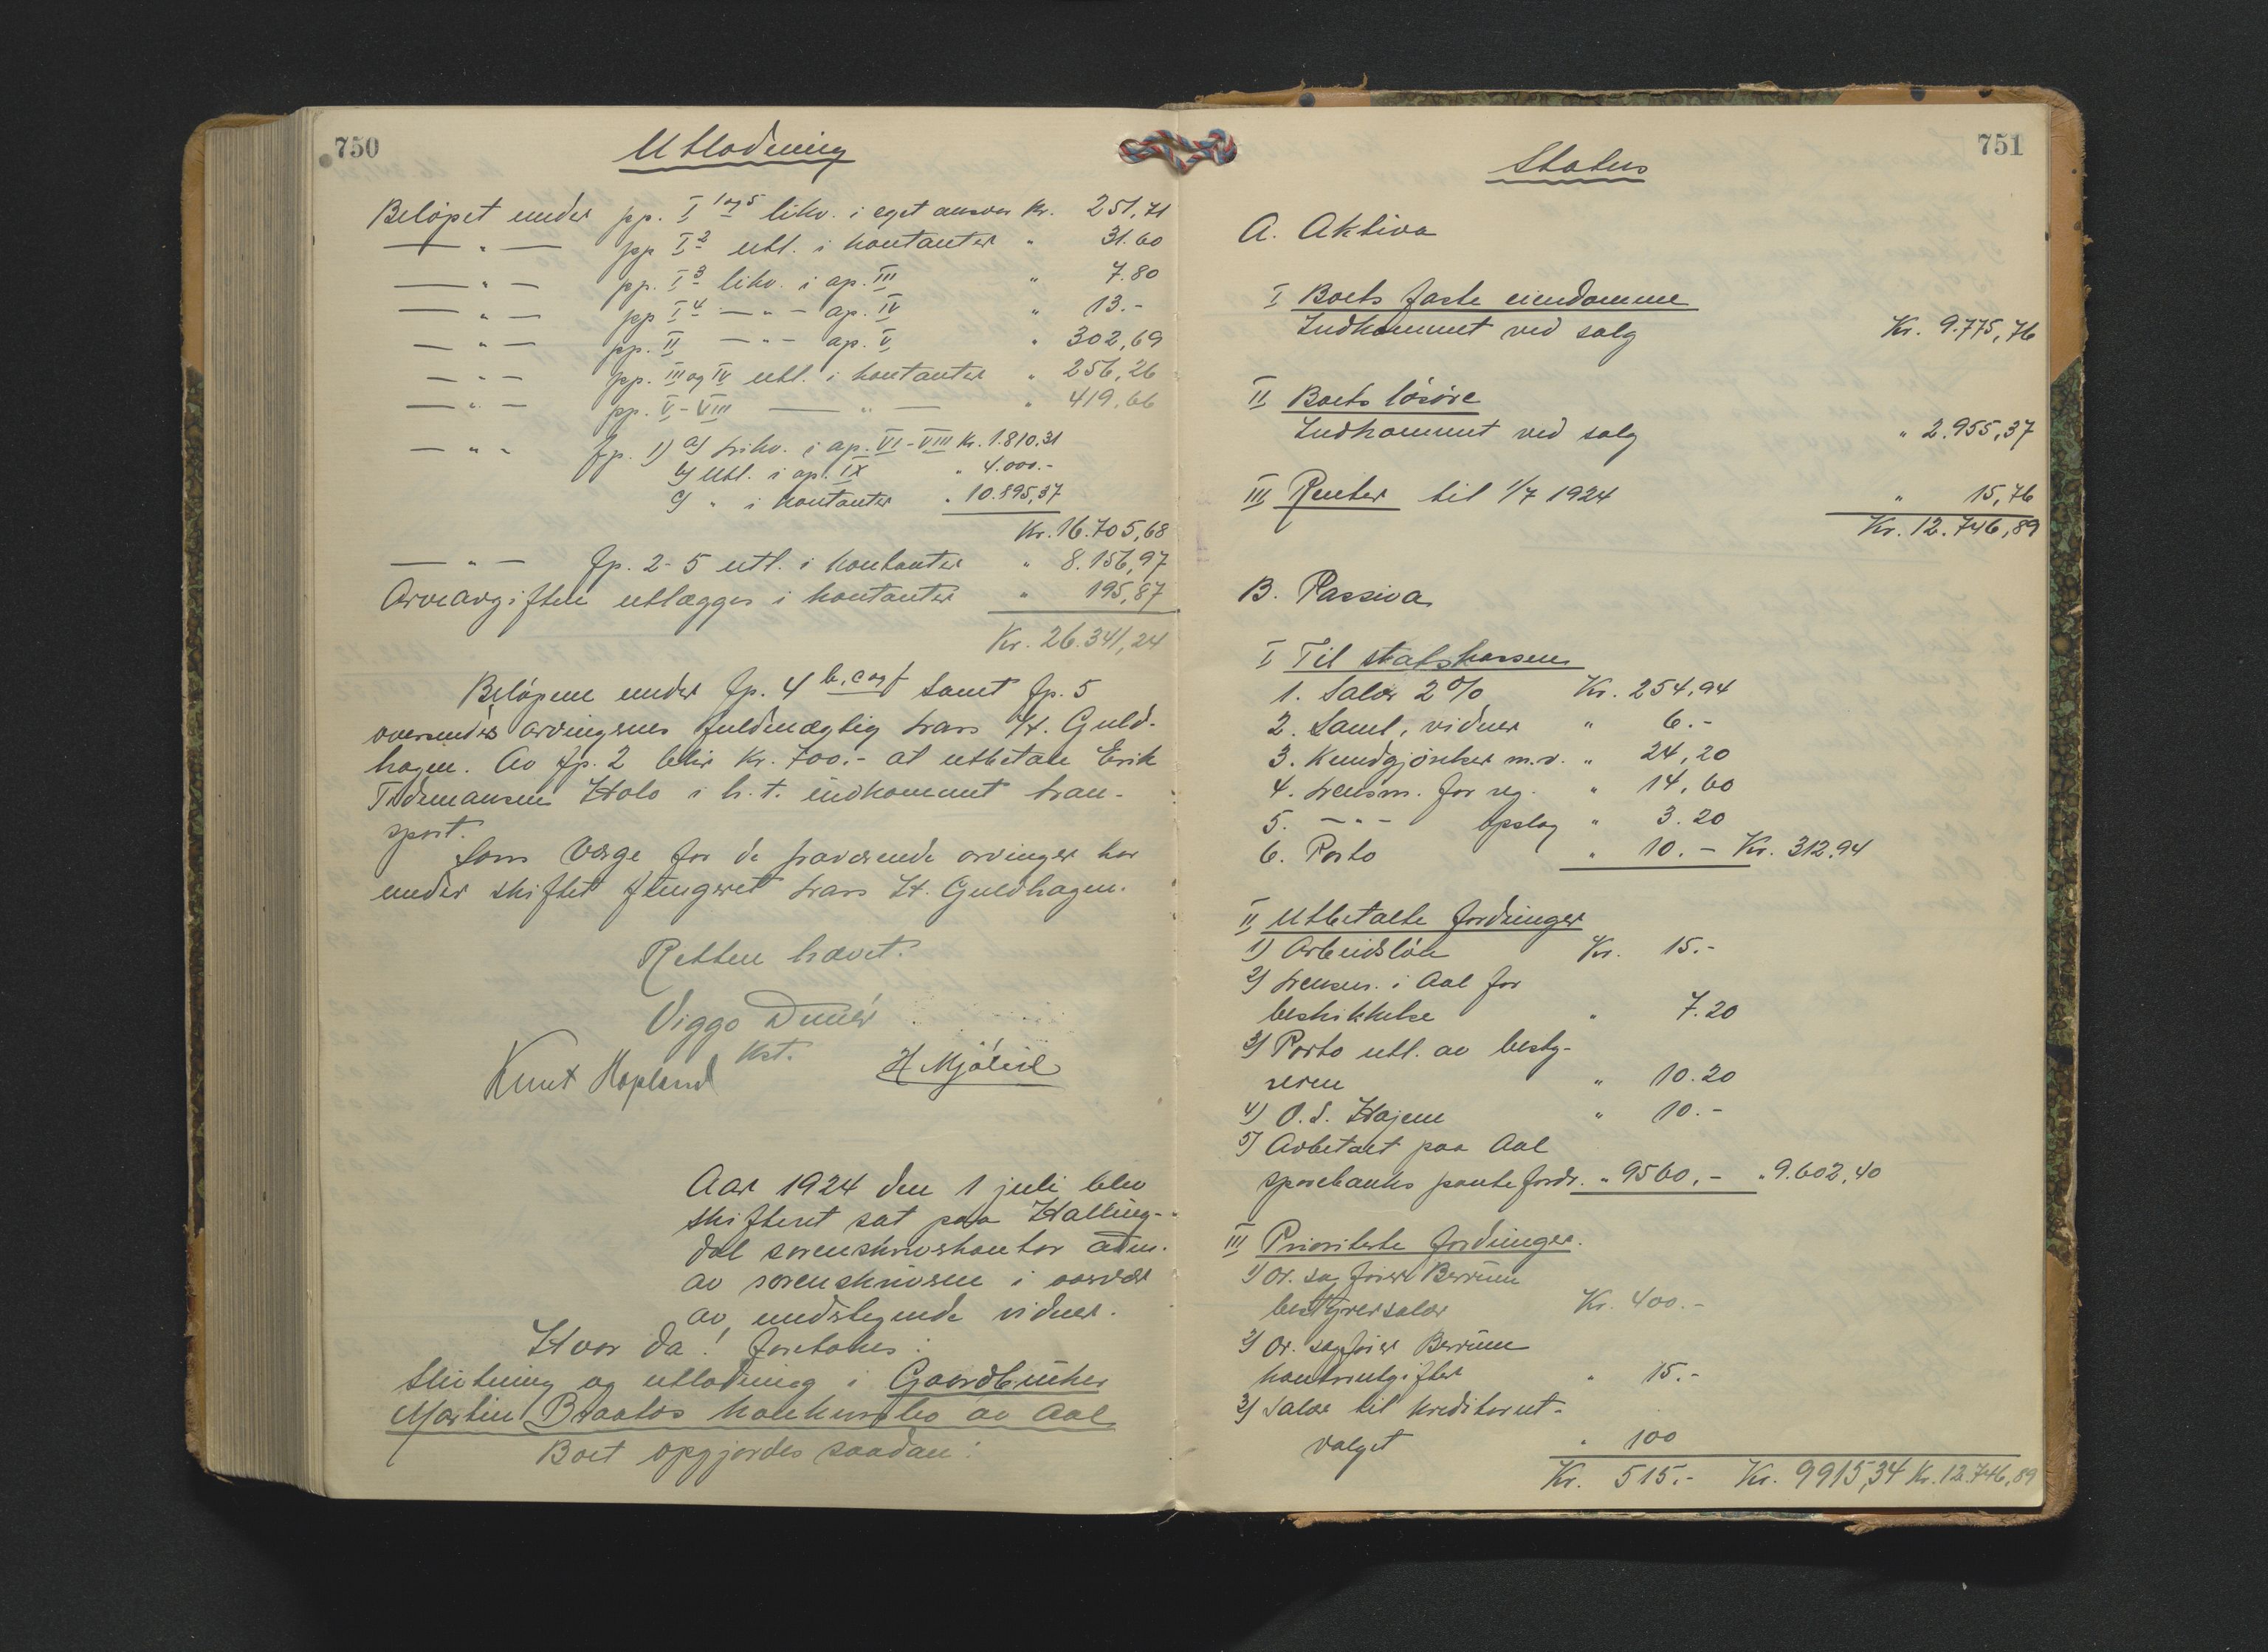 750
Utlodning
Beløpet under pp. I 1 og 5 likv. i eget ansvar Kr. 251,71
— " — pp I 2 utl. i kontanter " 31.60
— " — pp. I 3 likv. i ap. III " 7.80
— " — pp I 4 — " — ap. IV " 13.-
— " — pp. II — " — ap. V " 302,69
— " — pp. III og IV utl. i kontanter " 256,26
— " — pp. V - VIII — " — " 419.66
— " — fp. 1) a) Likv. i ap. VI - VIII Kr. 1.810.31
b) utl. i ap. IX " 4.000.-
c) " i kontanter " 10.895,37
Kr. 16.705,68
— " — fp. 2-5 utl. i kontanter " 8.156,97
Arveavgiften utlægges i kontanter " 195,87
Kr. 26.341,24
Beløpene under fp. 4 b, c og f samt fp. 5
oversendes arvingenes fuldmægtig Lars H. Guld-
hagen. Av fp. 2 blir Kr. 700.- at utbetale Erik
Tidemansen Holo i h.t. indkommet tran-
sport.
Som verge for de fraværende arvinger har
under skiftet fungeret Lars H. Guldhagen.
Retten hævet.
Viggo
Kst.
Knut Hopland H. Mjøleid
Aar 1924 den 1 juli blev
skifteret sat paa Halling-
dal sorenskriverkontor adm.
av sorenskriveren i overvær
av undertegnede vidner.
Hvor da! foretokes:
Slutning og utlodning i Gaardbruker
Martin Braatos konkursbo av Aal
Boet opgjordes saadan:
751
Status
A. Aktiva
I Boets faste eiendomme
Indkommet ved salg Kr. 9.775,76
II Boets løsøre
Indkommet ved salg " 2.955,37
III Renter til 1/7 1924 " 15,76
Kr. 12.746,89
B. Passiva
I Til statskassen
1. Salær 2% Kr. 254,94
2. Saml, vidner " 6.-
3. Kundgjørelser m.v. " 24,20
4. Lensm. for reg. " 14,60
5. — " — opslag " 3.20
6. Porto " 10.- Kr. 312.94
II Utbetalte fordringer
1) Arbeidsløn Kr. 15.-
2) Lensm. i Aal for
beskikkelse " 7.20
3) Porto utl. av besty-
reren " 10.20
4) O. S. Hajem " 10.-
5) Avbetalt paa Aal
sparebanks pantefordr. " 9560,- " 9.602,40
III Prioriterte fordringer.
1) Or. sagfører Berrum
bestyrersalær Kr. 400.-
2) Or. sagfører Berrum
kontorutgifter " 15.-
3) Salær til kreditorut-
valget " 100
Kr. 515.- Kr. 9915,34 Kr. 12.746,89